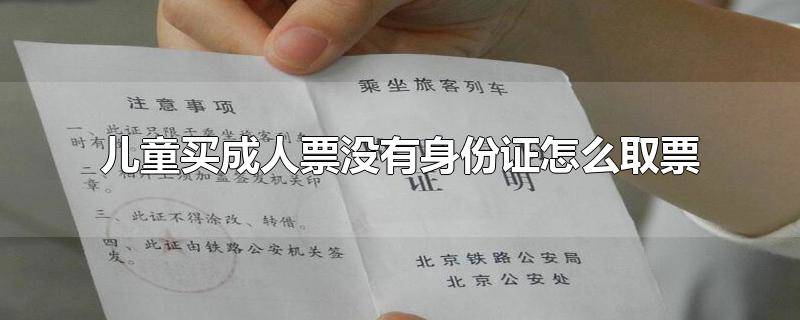 注意事项
一、此证只限于乘坐旅客列
时有
二、相片上须加盖签发机关印
章。
三、此证不得涂改、转借。
四、此证由铁路公安机关签
发。
乘坐旅客列车
证 明
北京铁路公安局
北京公安处
儿童买成人票没有身份证怎么取票